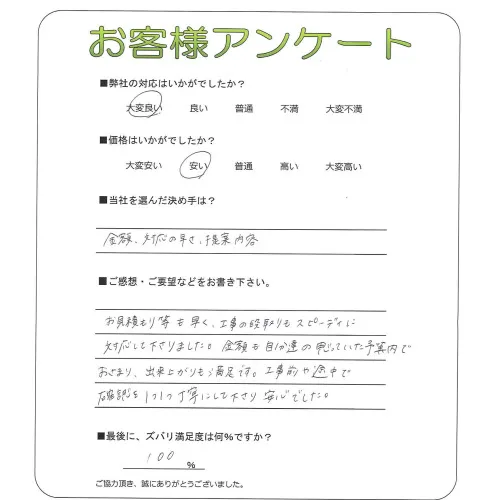 お客様アンケート
■弊社の対応はいかがでしたか？
大変良い 良い 普通 不満 大変不満
■価格はいかがでしたか？
大変安い 安い 普通 高い 大変高い
■当社を選んだ決め手は？
金額、対応の早さ、提案内容
■ご感想・ご要望などをお書き下さい。
お見積もり等も早く、工事の段取りもスピーディに
対応して下さりました。金額も自分達の思っていた予算内で
おさまり、出来上がりも満足です。工事前や途中で
確認を1つ1つ丁寧にして下さり安心でした。
■最後に、ズバリ満足度は何％ですか？
100 ％
ご協力頂き、誠にありがとうございました。